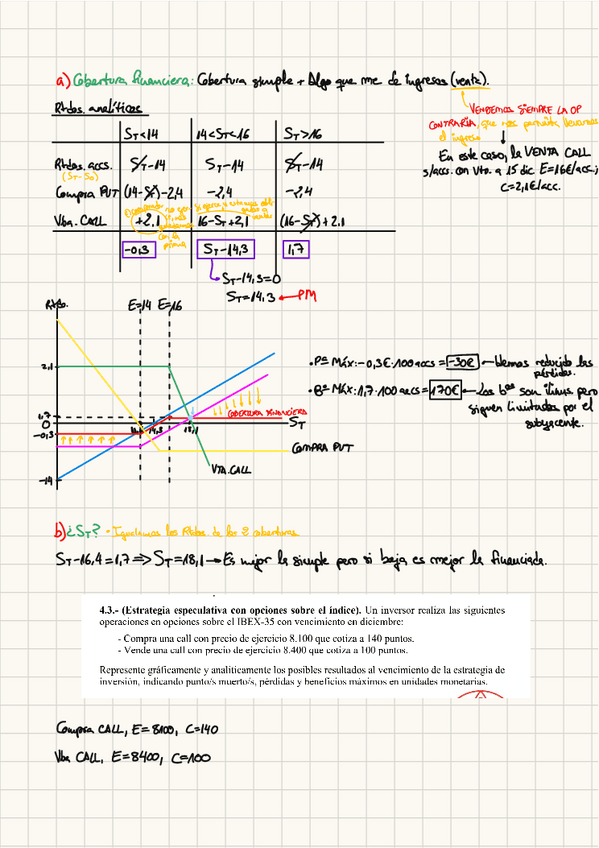 a) Cobertura financiera: Cobertura simple + Algo que me de ingresos (venta).
VENDEMOS SIEMPRE LA OP
CONTRARIA, que nos permita
el ingreso
En este caso, la VENTA CALL
s/accs. con vto. a 15 dic. E=16€/acc.;
C=2,1€/acc.
Rtdos. analíticos
ST<14 14<ST<16 ST>16
Rtdos. accs. ST-14 ST-14 ST-14
(ST-S0)
Compra PUT (14-ST)-2,4 -2,4 -2,4
Vta. CALL +2,1 16-ST+2,1 (16-ST)+2,1
-0,3 ST-14,3 1,7
ST-14,3=0
ST=14,3 ← PM
Rtdo. E=14 E=16
2,1
1,7
0
-0,3
-14
14,3
18,1
ST
COBERTURA FINANCIERA
COMPRA PUT
VTA. CALL
• Pª Máx: -0,3€·100 accs = -30€ → hemos reducido las
pérdidas.
• Bº Máx: 1,7·100 accs = 170€ ← Los bºs son pero
siguen limitados por el
subyacente.
b) ¿ST? • Igualamos los Rtdos. de las 2 coberturas
ST-16,4=1,7 ⇒ ST=18,1 → Es mejor la simple pero si baja es mejor la financiada.
4.3.- (Estrategia especulativa con opciones sobre el índice). Un inversor realiza las siguientes
operaciones en opciones sobre el IBEX-35 con vencimiento en diciembre:
- Compra una call con precio de ejercicio 8.100 que cotiza a 140 puntos.
- Vende una call con precio de ejercicio 8.400 que cotiza a 100 puntos.
Represente gráficamente y analíticamente los posibles resultados al vencimiento de la estrategia de
inversión, indicando punto/s muerto/s, pérdidas y beneficios máximos en unidades monetarias.
Compra CALL, E=8100, C=140
Vta CALL, E=8400, C=100